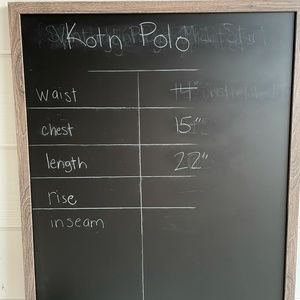 Kotn Polo
waist 14"
chest 15"
length 22"
rise
inseam